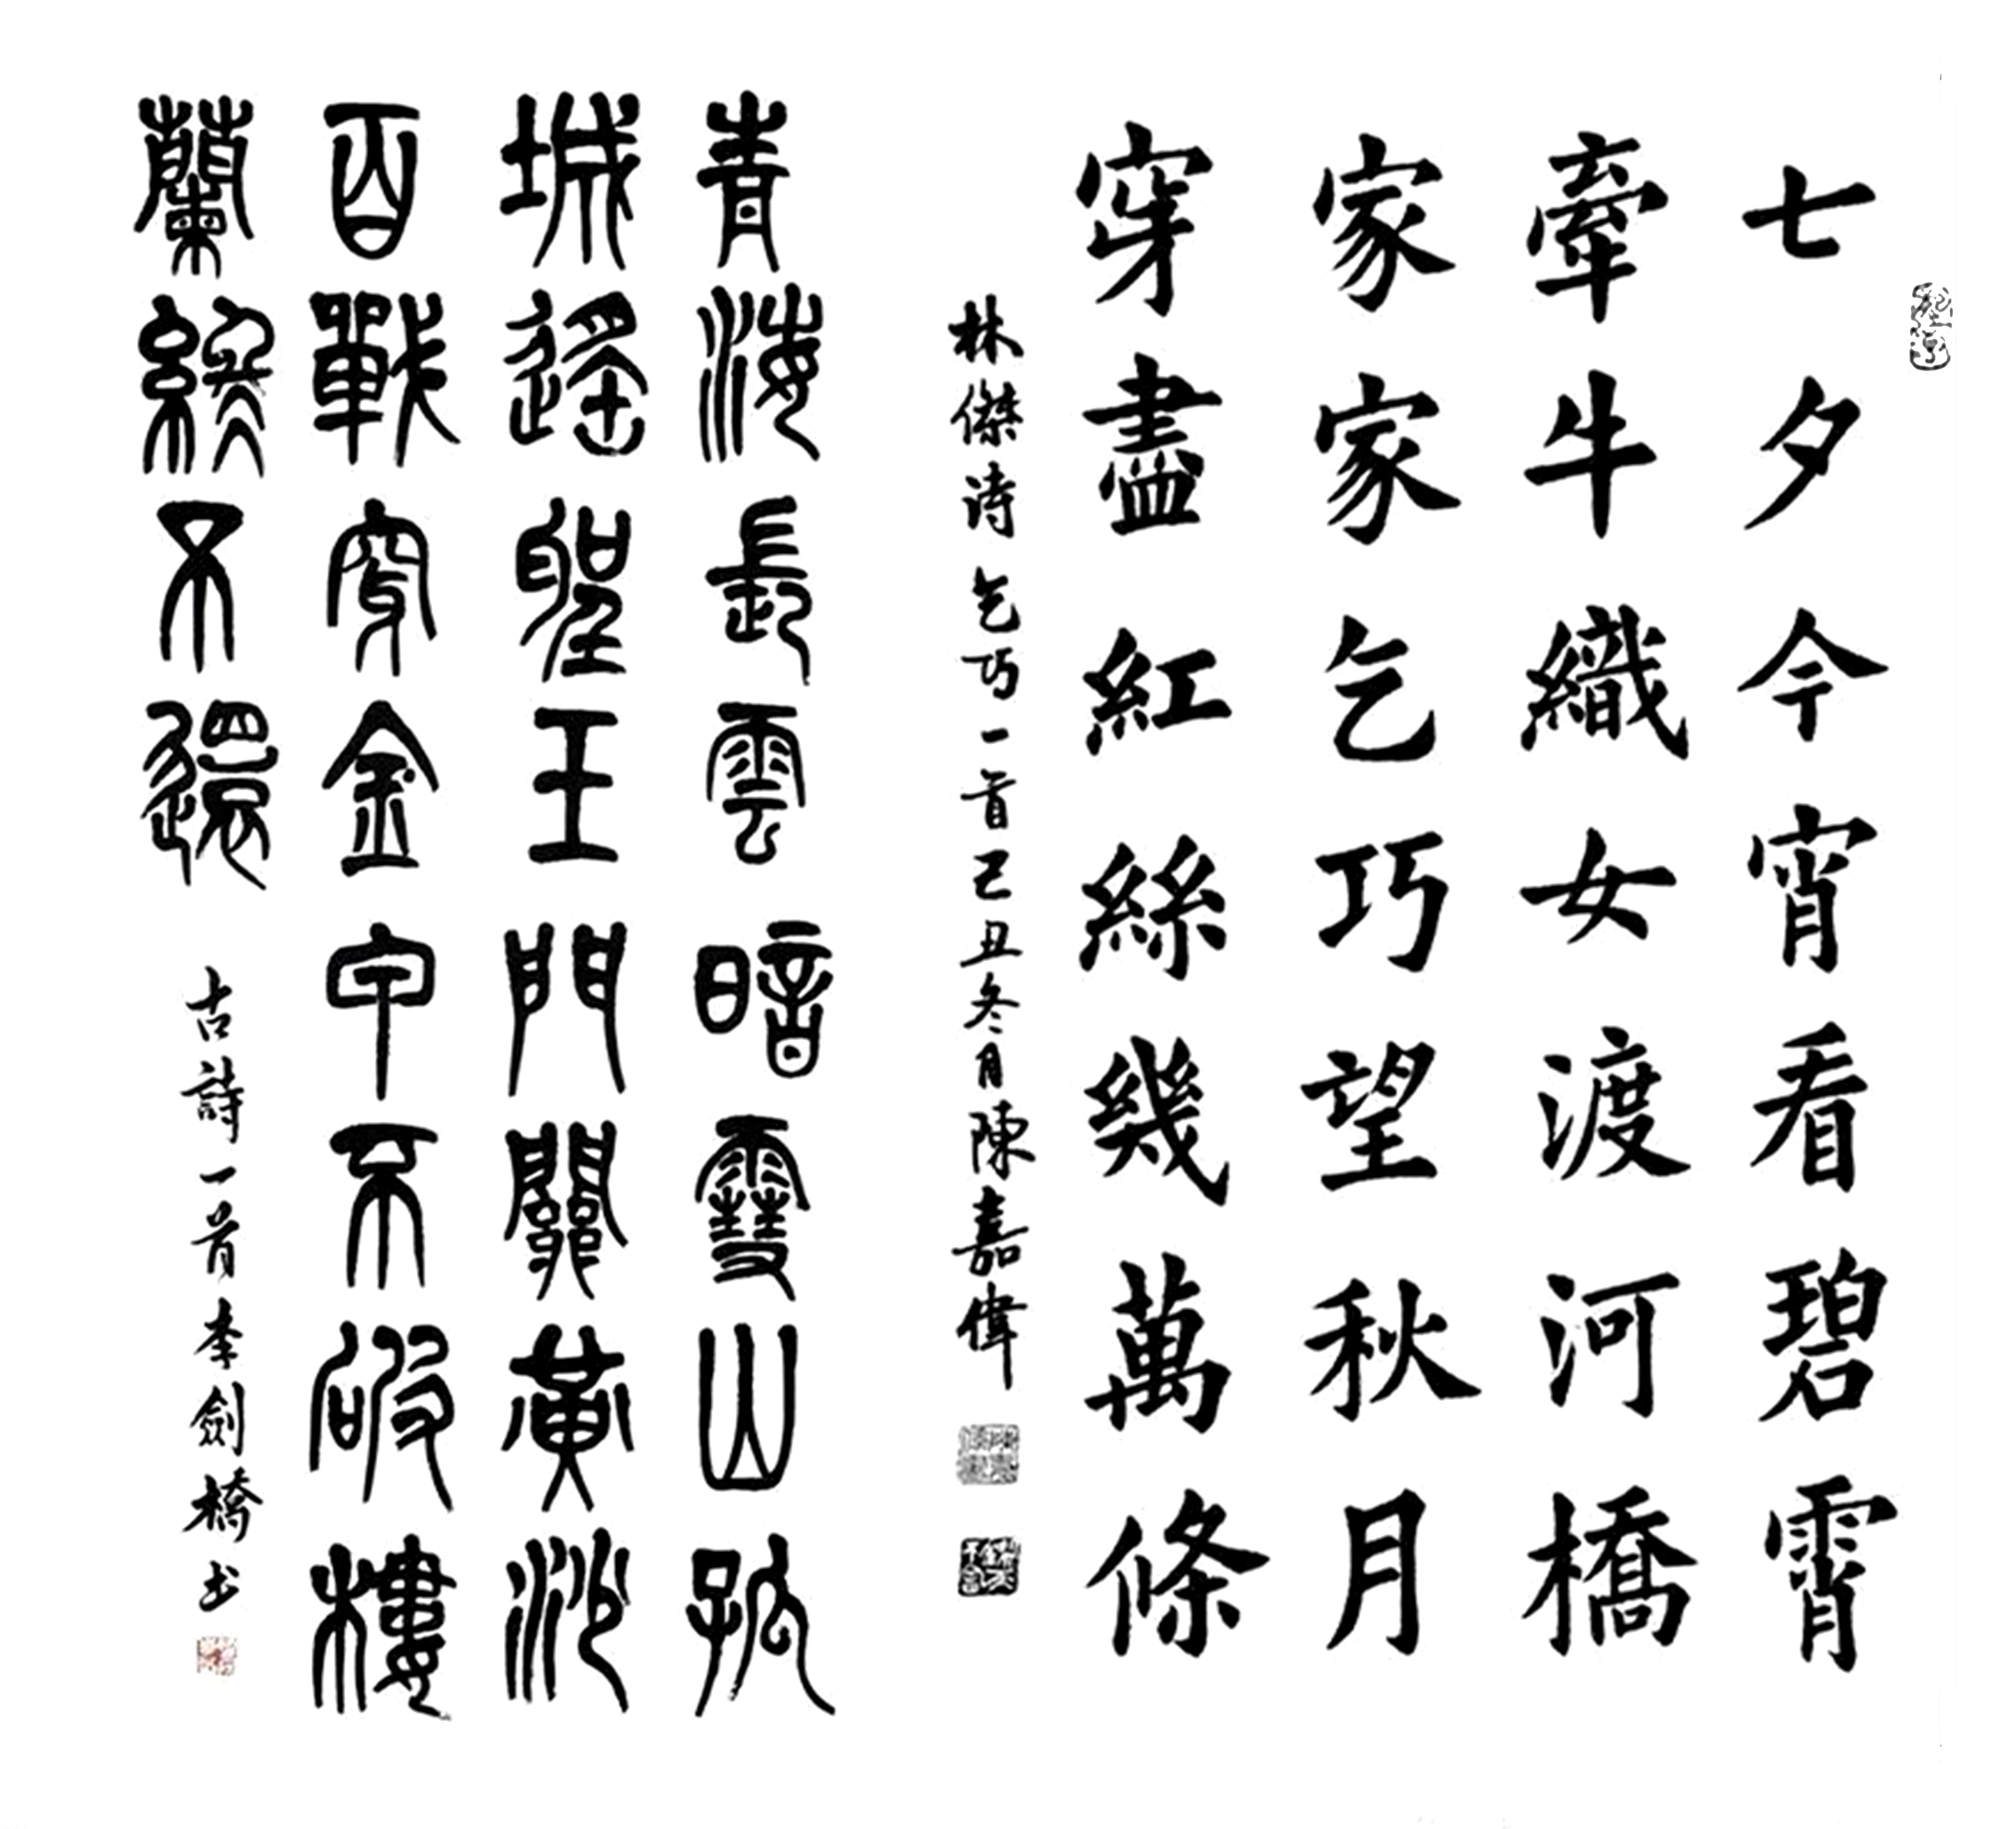 七夕今宵看碧霄
牽牛織女渡河橋
家家乞巧望秋月
穿盡紅絲幾萬條
林傑诗乞巧一首己丑冬月陳嘉偉
青海長雲暗雪山孤
城遙望玉門關黃沙
百戰穿金甲不破樓
蘭終不還
古詩一首李劍橋书